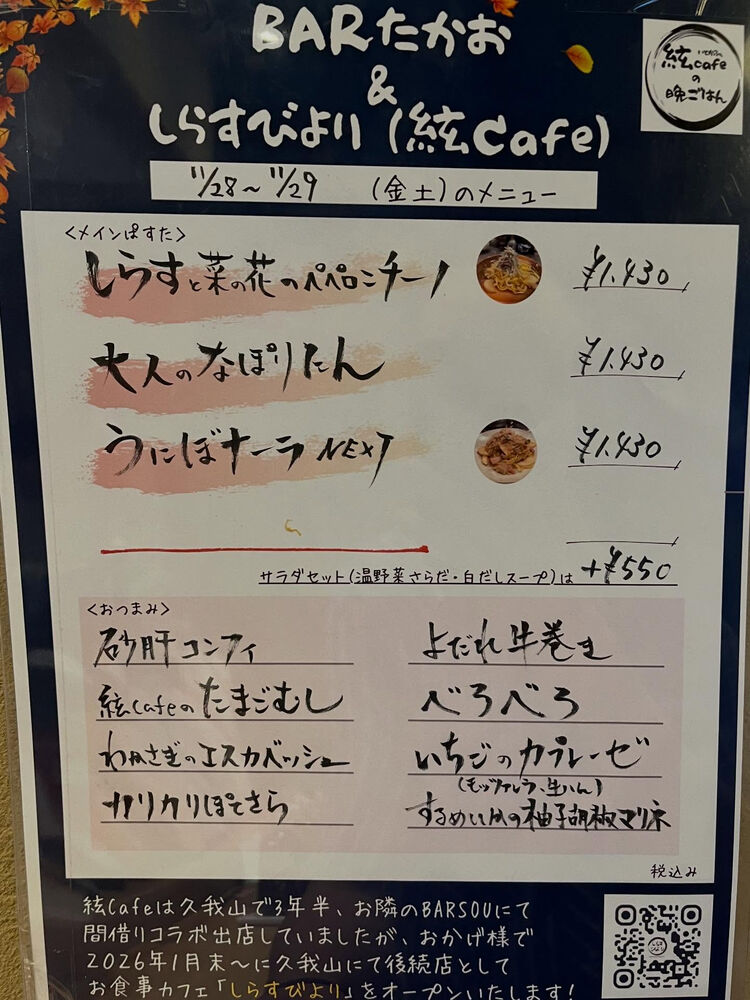 BARたかお
&
しらすびより(絃Cafe)
絃cafe
の
晩ごはん
11/28～11/29 (金土)のメニュー
<メインぱすた>
しらすと菜の花のペペロンチーノ ¥1.430
大人のなぽりたん ¥1.430
うにぼナーラ NEXT ¥1.430
サラダセット(温野菜さらだ・白だしスープ)は +¥550
<おつまみ>
砂肝コンフィ
絃cafeのたまごむし
わかさぎのエスカベッシュ
カリカリぽてさら
よだれ牛巻き
べろべろ
いちごのカプレーゼ
(モッツァレラ、生ハム)
するめいかの柚子胡椒マリネ
税込み
絃Cafeは久我山で3年半、お隣のBARSOUにて
間借りコラボ出店していましたが、おかげ様で
2026年1月末～に久我山にて後続店として
お食事カフェ「しらすびより」をオープンいたします!